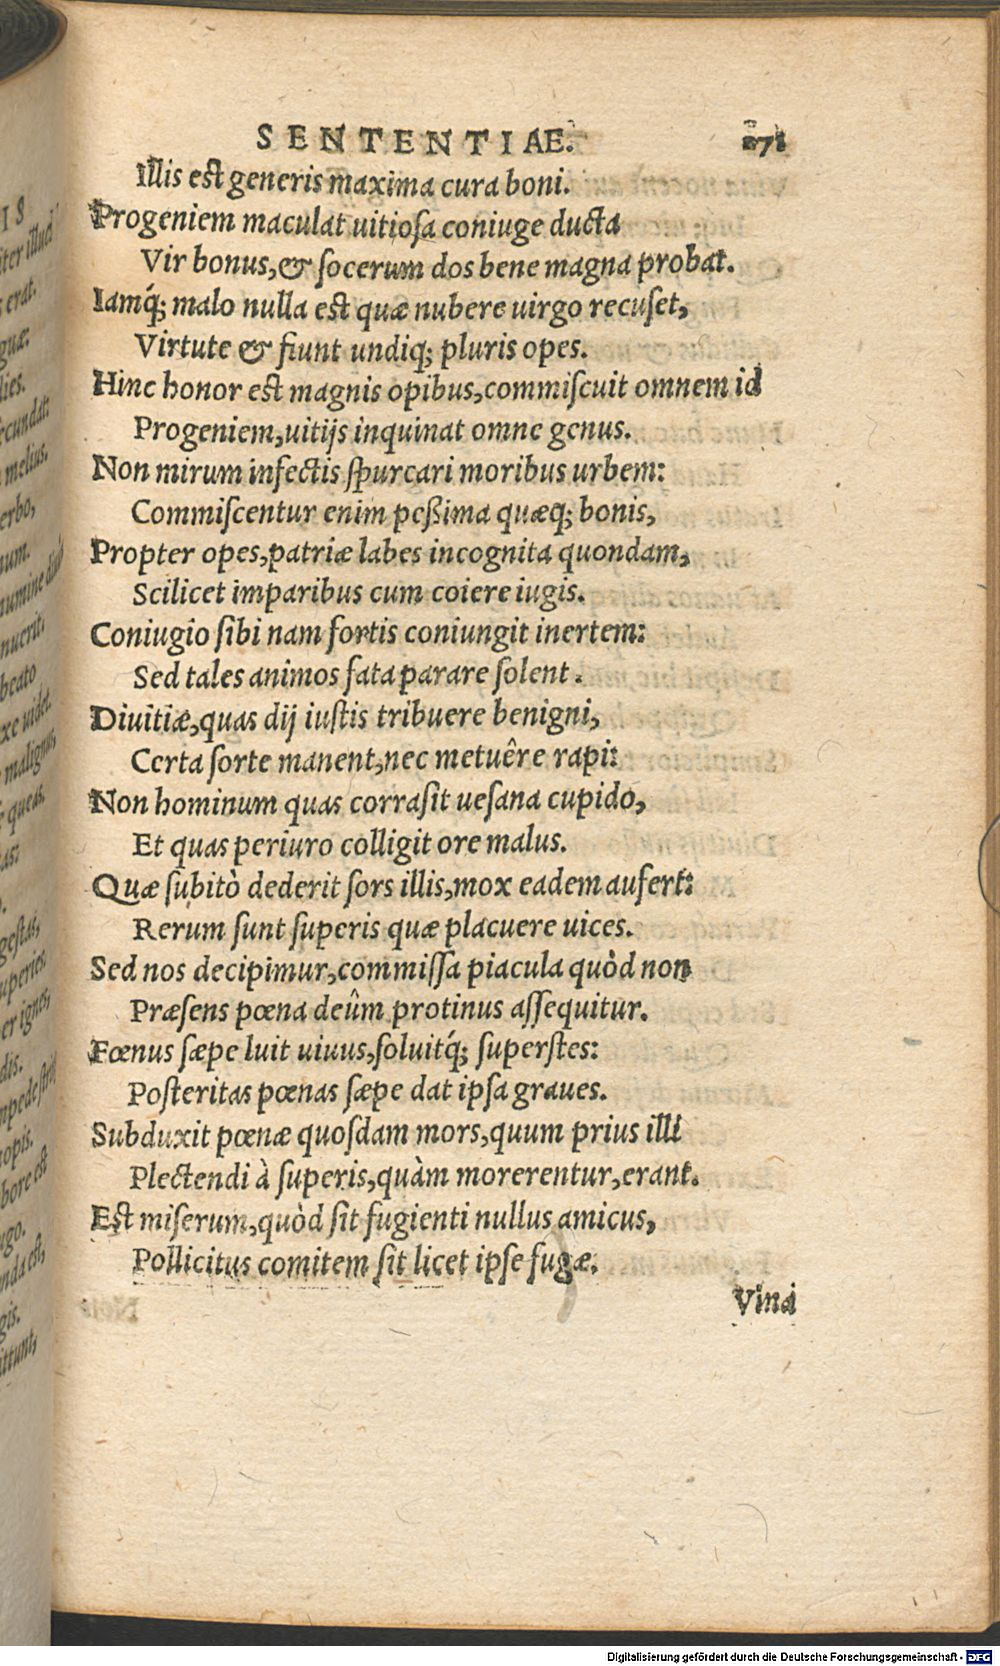 SENTENTIAE. 271
Illis est generis maxima cura boni.
Progeniem maculat uitioſa coniuge ducta
Vir bonus,& ſocerum dos bene magna probat.
Iamq́; malo nulla est quæ nubere uirgo recuſet,
Virtute & fiunt undiq; pluris opes.
Hinc honor est magnis opibus,commiſcuit omnem id
Progeniem,uitijs inquinat omne genus.
Non mirum infectis ſpurcari moribus urbem:
Commiſcentur enim peßima quæq; bonis,
Propter opes,patriæ labes incognita quondam,
Scilicet imparibus cum coiere iugis.
Coniugio ſibi nam fortis coniungit inertem:
Sed tales animos fata parare ſolent.
Diuitiæ,quas dij iuſtis tribuere benigni,
Certa ſorte manent,nec metuêre rapi:
Non hominum quas corraſit ueſana cupido,
Et quas periuro colligit ore malus.
Quæ ſubitò dederit ſors illis,mox eadem aufert:
Rerum ſunt ſuperis quæ placuere uices.
Sed nos decipimur,commiſſa piacula quòd non
Præſens pœna deûm protinus aſſequitur.
Fœnus ſæpe luit uiuus,ſoluitq́; ſuperſtes:
Poſteritas pœnas ſæpe dat ipſa graues.
Subduxit pœnæ quoſdam mors,quum prius illi
Plectendi à ſuperis,quàm morerentur,erant.
Est miſerum,quòd ſit fugienti nullus amicus,
Pollicitus comitem ſit licet ipſe fugæ.
Vina
IS
iter illud
erat.
guæ.
lies.
ecundat:
melius.
erbo,
num.
numine
nuerit:
beato
xe uidet.
malignus,
queas.
as:
geſtas,
uperies.
er ignes,
dis.
opis.
bore est
ugo.
nda est,
gis.
ittunt,
Digitalisierung gefördert durch die Deutsche Forschungsgemeinschaft - DFG